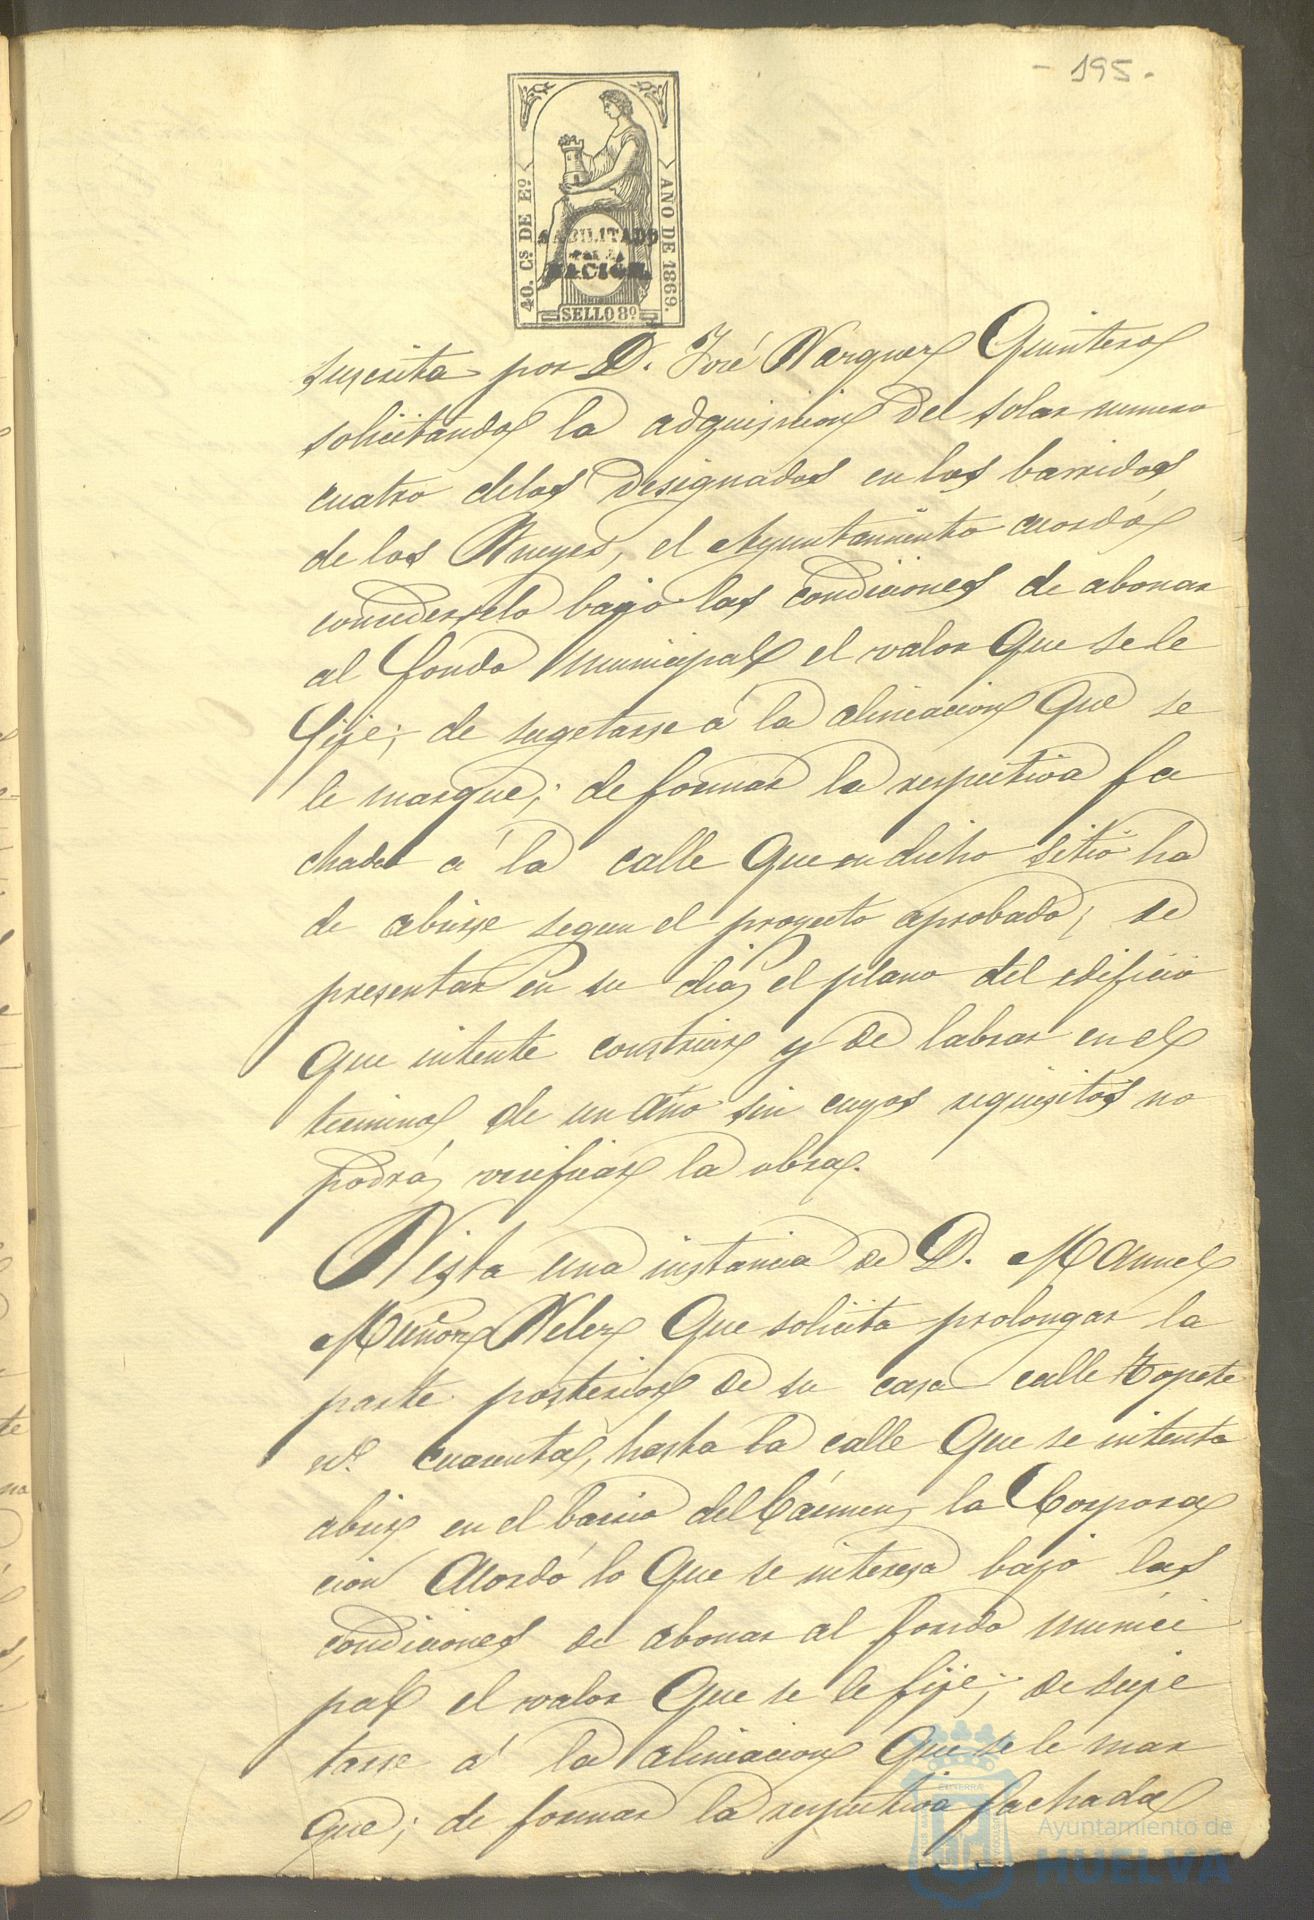 - 195.
40. Cs DE Eo
AÑO DE 1869.
HABILITADO
POR LA
NACION.
SELLO 8º
suscrita por D. José Vazquez Quintero
solicitando la adquisicion del solar numero
cuatro delos designados en los barridos
de los Nueyes, el Ayuntamiento acordó
concederselo bajo las condiciones de abonar
al fondo municipal el valor que se le
fije; de sugetarse á la alineacion que se
le marque; de formar la respectiva fa
chada á la calle que en dicho sitio ha
de abrirse segun el proyecto aprobado; de
presentar en su dia el plano del edificio
que intente construir y de labrar en el
termino de un año sin cuyos requisitos no
podrá verificar la obra.
Vista una instancia de D. Manuel
Muñoz Velez que solicita prolongar la
parte posterior de su casa calle Topete
nº cuarenta, hasta la calle que se intenta
abrir en el barrio del Cármen, la Corpora
cion acordó lo que se interesa bajo las
condiciones de abonar al fondo munici
pal el valor que se le fije; de suje
tarse á la alineacion que se le mar
que; de formar la respectiva fachada
Ayuntamiento de
HUELVA